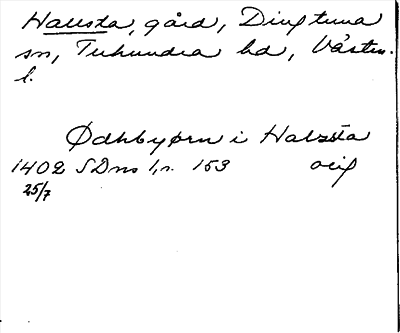 Hallsta, gård, Dingtuna
sn, Tuhundra hd, Västm.
l.
Ødhbyørn i Halzsta
1402 SDns 1, n. 153 orig
25/7